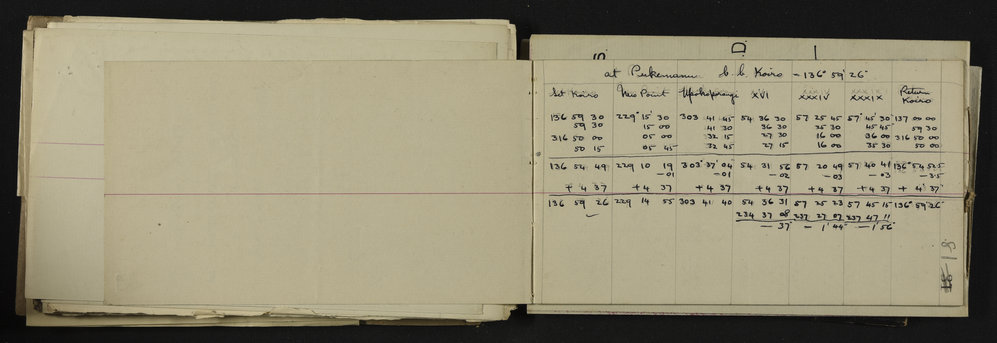 at Pukemanu b. b. Koiro - 136° 59' 26"
Set Koiro Neio Point XVI XXXIV XXXIX Return Koiro
136 59 30 229° 15' 30 303 41 45 54 36 30 57 25 45 57° 45' 30" 137 00 00
59 30 15 00 41 30 36 30 25 30 45 45 59 30
316 50 00 05 00 32 15 27 30 16 00 36 00 316 50 00
50 15 05 45 32 45 27 15 16 00 35 30 50 00
136 54 49 229 10 19 303° 37' 04" 54 31 56 57 20 49 57 40 41 136° 54' 52.5
-01 -01 -02 -03 -03 -3.5
+ 4 37 +4 37 +4 37 +4 37 +4 37 +4 37 + 4' 37"
136 59 26 229 14 55 303 41 40 54 36 31 57 25 23 57 45 15 136° 59' 26"
234 37 08 237 27 07 237 47 11
- 37" - 1' 44" - 1' 56"